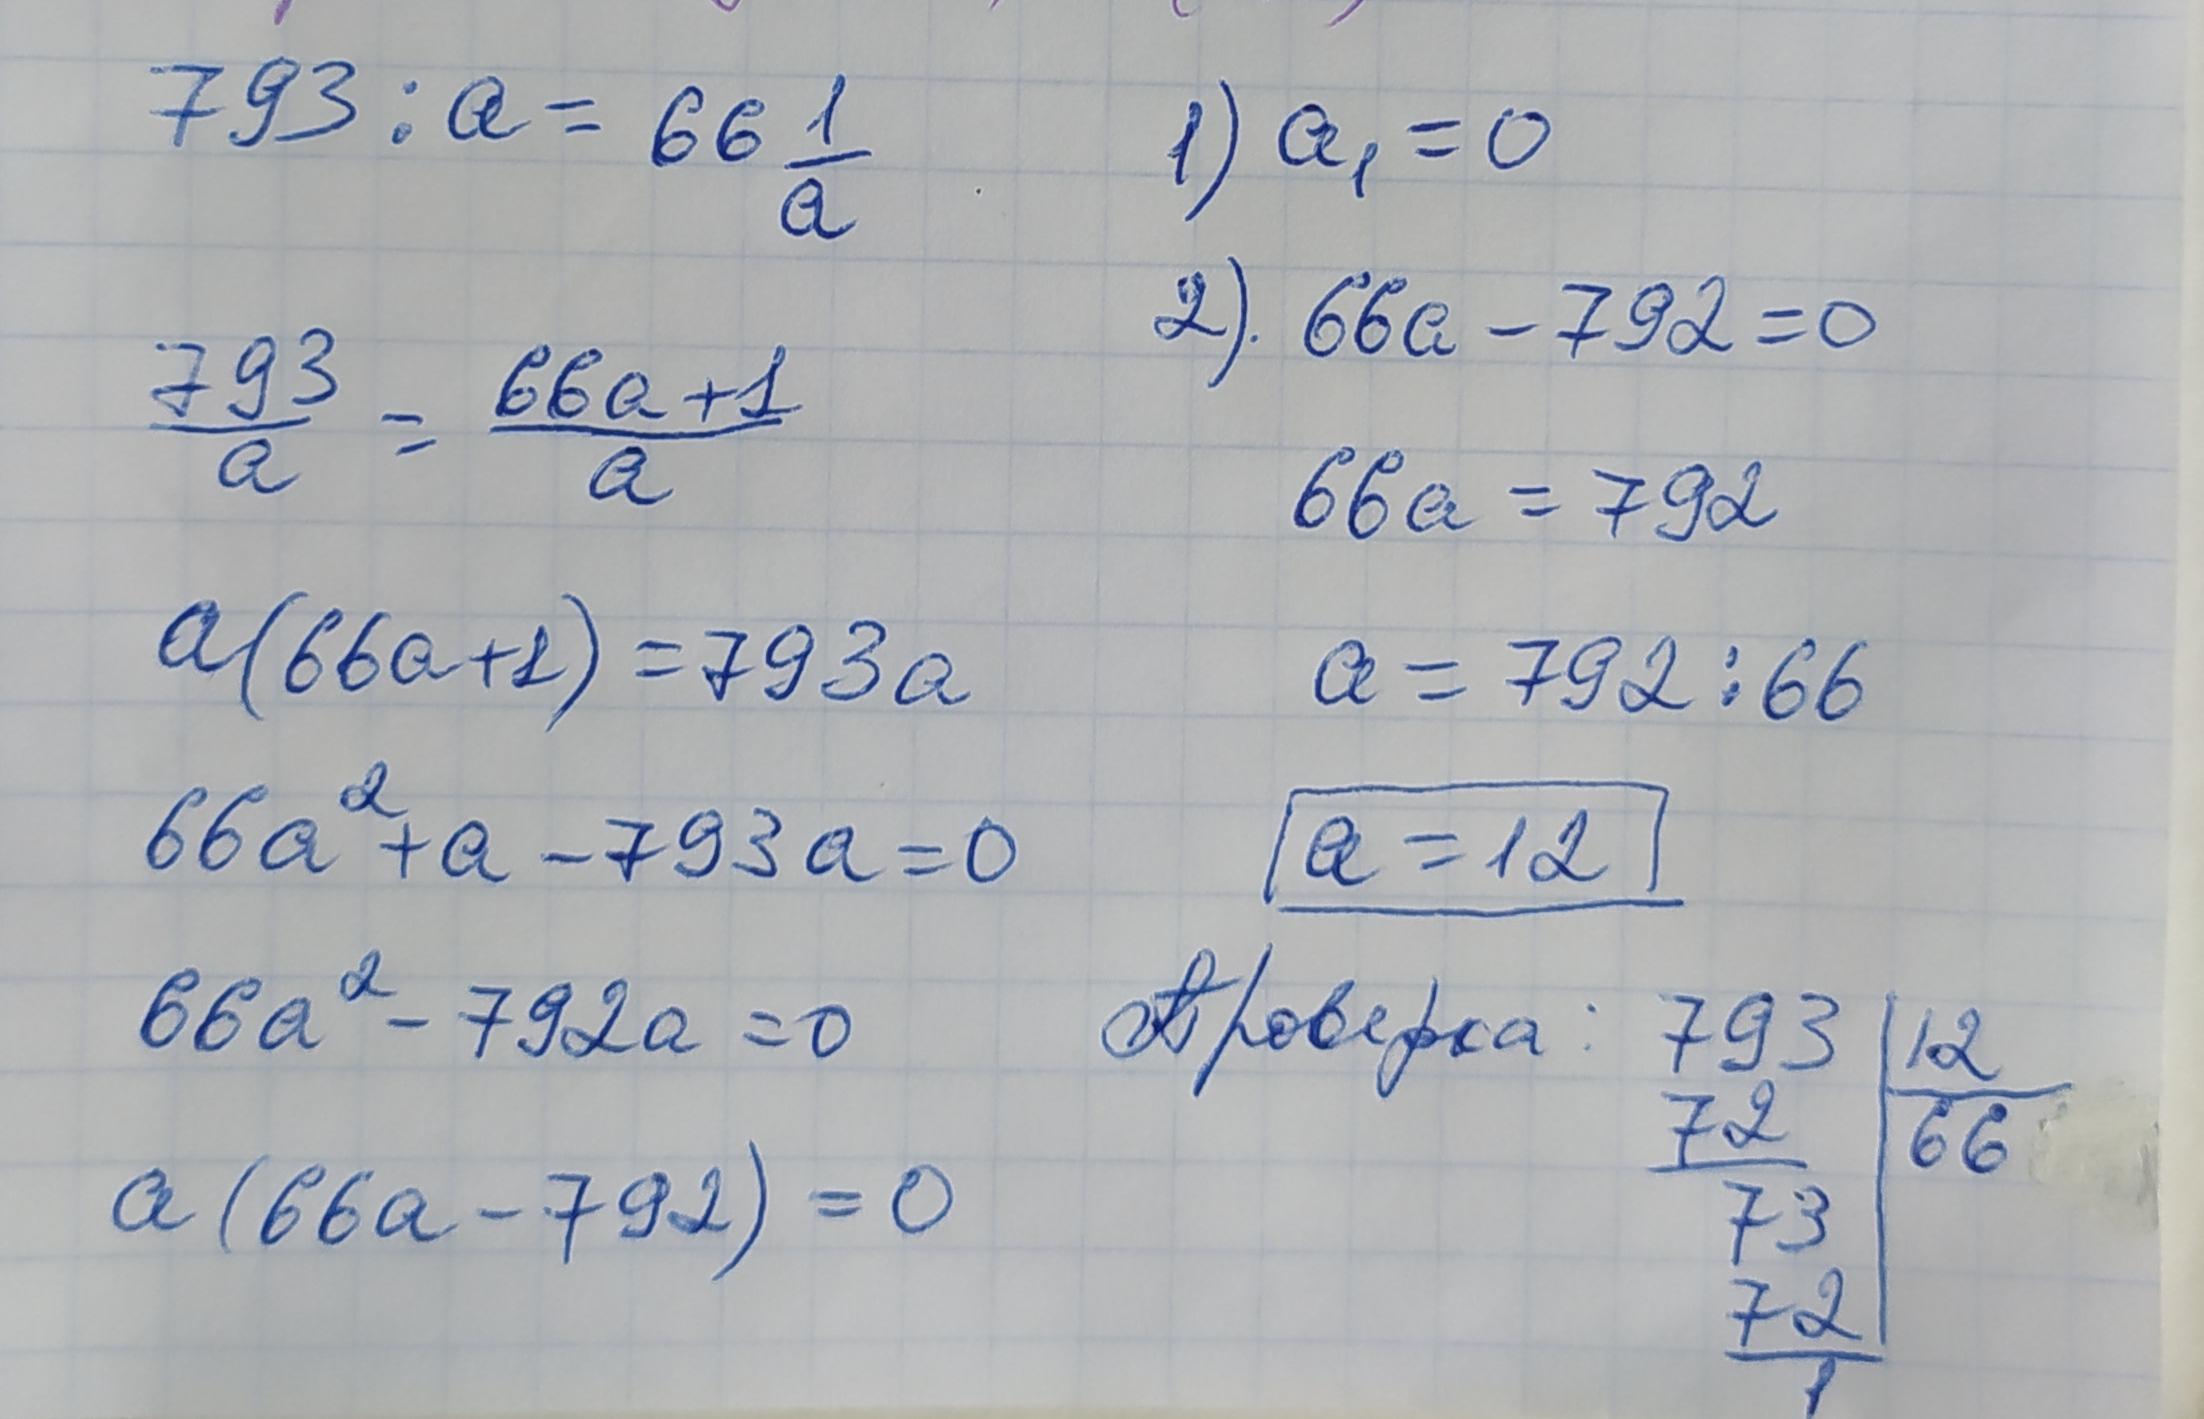 793 : a = 66 1/a
793/a = (66a+1)/a
a(66a+1) = 793a
66a² + a - 793a = 0
66a² - 792a = 0
a(66a - 792) = 0
1) a₁ = 0
2). 66a - 792 = 0
66a = 792
a = 792 : 66
a = 12
Проверка: 793 | 12
72 | 66
73
72
1